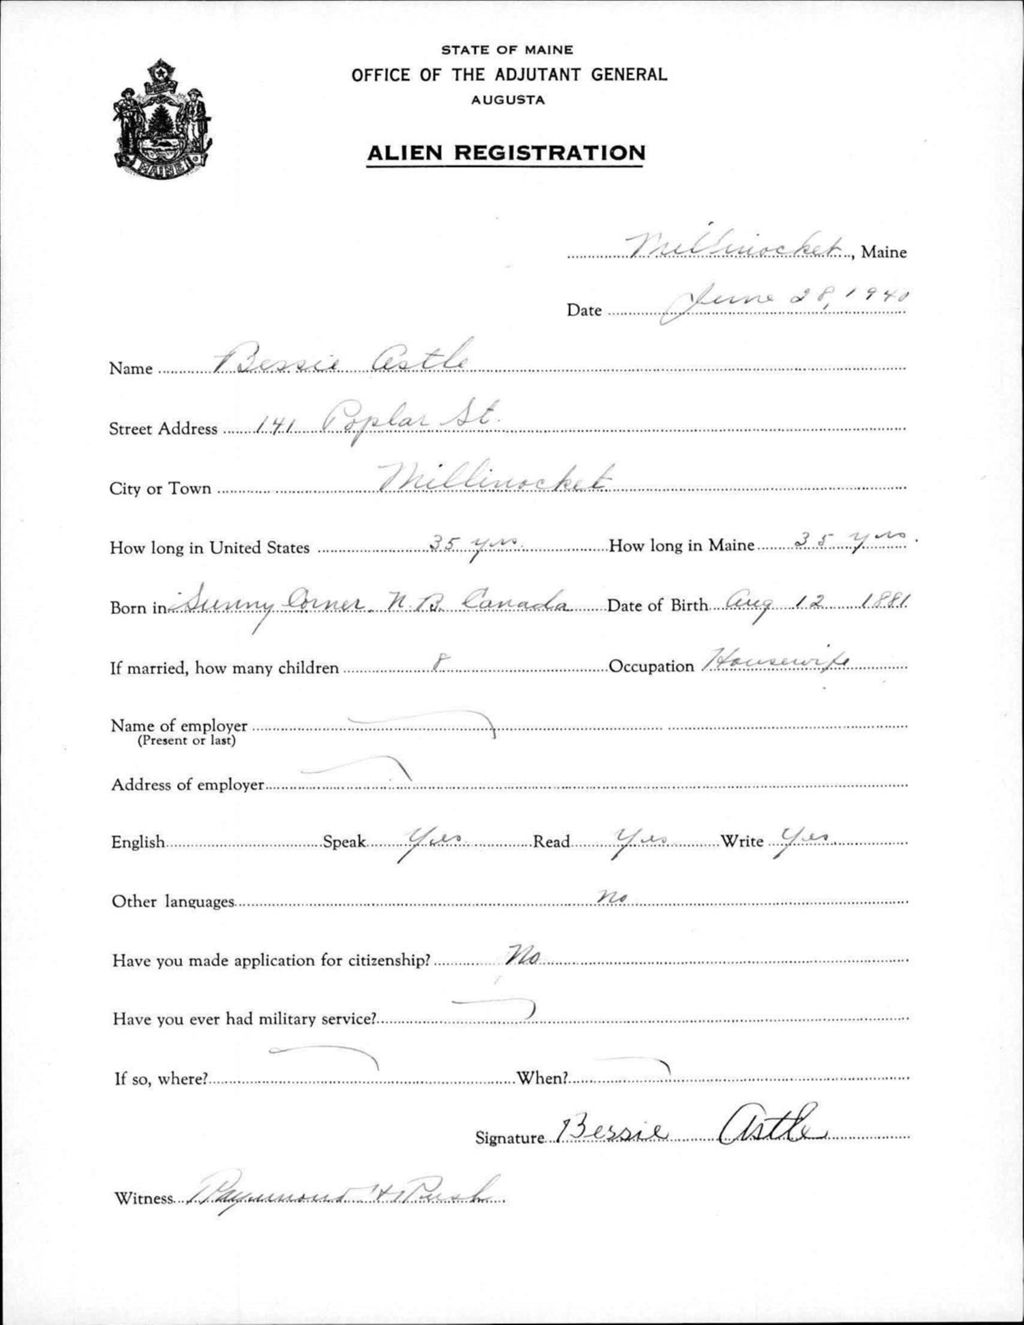 STATE OF MAINE
OFFICE OF THE ADJUTANT GENERAL
AUGUSTA
ALIEN REGISTRATION
MAINE
Millinocket, Maine
Date June 28, 1940
Name Bessie Astle
Street Address 141 Poplar St.
City or Town Millinocket
How long in United States 35 yrs. How long in Maine 35 yrs.
Born in Sunny Corner, N.B. Canada Date of Birth Aug 12 1881
If married, how many children 8 Occupation Housewife
Name of employer
(Present or last)
Address of employer
English Speak Yes Read Yes Write Yes
Other languages No
Have you made application for citizenship? No
Have you ever had military service?
If so, where? When?
Signature Bessie Astle
Witness Raymond H Rush